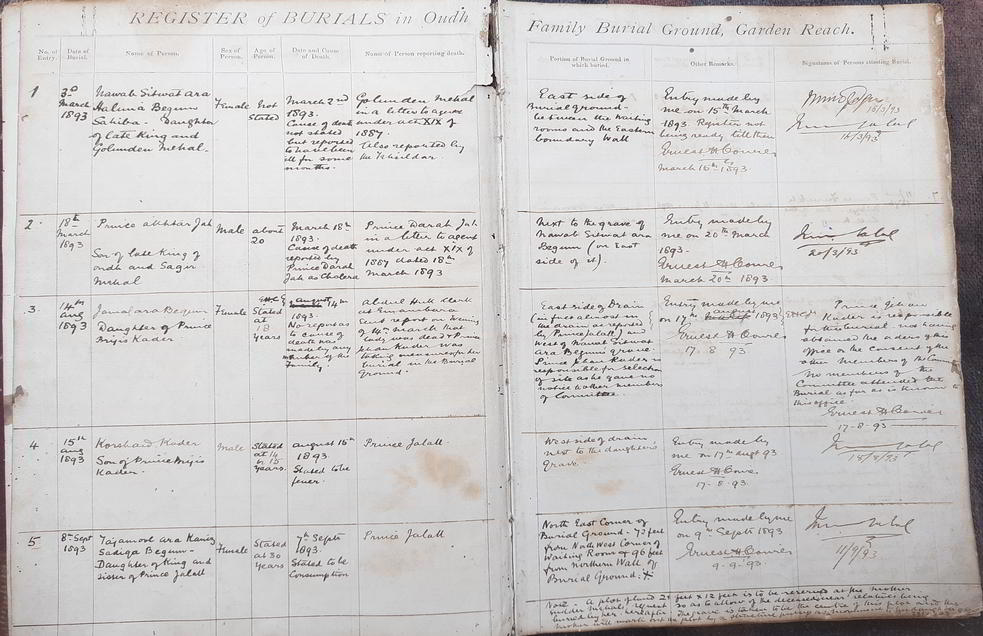 REGISTER of BURIALS in Oudh Family Burial Ground, Garden Reach.
No. of Entry.
Date of Burial.
Name of Person.
Sex of Person.
Age of Person.
Date and Cause of Death.
Name of Person reporting death.
Portion of Burial Ground in which buried.
Other Remarks.
Signatures of Persons attending Burial.
1
3rd
March
1893
Nawab Sitwat ara
Begum
Sahiba - Daughter
of late King and
Golunden Mehal.
Female
Not
stated
March 2nd
1893.
Cause of death
not stated
but reported
to have been
ill for some
months.
Golunden Mehal
in a letter to agent
under act XIX of
1887.
Also reported by
the
East side of
Burial ground
between the waiting
rooms and the Eastern
boundary Wall
Entry made by
me on 15th March
1893 Register not
being ready till then
Ernest H
March 15th 1893
16/3/93
16/3/93
2
18th
March
1893
Prince Jah
Son of late King of
oudh and
Mehal
Male
about
20
March 18th
1893.
Cause of death
reported by
Prince Darah
Jah as Cholera
Prince Darah Jah
in a letter to agent
under act XIX of
1887 dated 18th
March 1893
Next to the grave of
Nawab Sitwat ara
Begum (on East
side of it).
Entry made by
me on 20th March
1893.
Ernest H
March 20th 1893
20/3/93
3
14th
aug
1893
ara Begum
Daughter of Prince
Brijis Kader
Female
Stated
at
18
years
14th
1893.
No report as
to cause of
death was
made by any
member of the
family.
report on
of 14th that
lady was dead & Prince
Jehan Kader was
taking measures for her
burial in the Burial
Ground.
East side of Drain
(in fact almost in
the drain as reported
by Prince Jalatt) and
West of Nawab Sitwat
Ara Begum's grave.
Prince Jehan Kader is
responsible for selection
of site as he gave no
notice to other members
of Committee.
Entry made by me
on 17th 1893
Ernest H
17-8-93
Prince Jehan
Kader is responsible
for this burial not having
obtained the orders of this
office or the consent of the
other members of the Committee
No members of the
Committee attended the
Burial as far as is known to
this office.
Ernest H
17-8-93
4
15th
aug
1893
Korshaid Kader
Son of Prince Brijis
Kader.
Male
Stated
at 14
to 15
years.
august 15th
1893
Stated to be
fever.
Prince Jalatt.
West side of drain,
next to the daughter's
grave.
Entry made by
me on 17th augt 93
Ernest H
17-8-93.
18/8/93
5
8th Sept
1893
ara
Sadiqa Begum -
Daughter of King and
sister of Prince Jalatt
Female
Stated
at 30
years
7th Septr
1893.
Stated to be
Consumption
Prince Jalatt
North East Corner of
Burial Ground - 73 feet
from North West Corner of
Waiting Room & 96 feet
from northern Wall of
Burial Ground: +
Entry made by me
on 9th Septr 1893
Ernest H
9-9-93.
11/9/93
Note - A plot of land 24 feet x 12 feet is to be reserved at the mother
request so as to allow of the deceased's near relatives being
buried by her hereafter. The grave is taken to be the centre of this plot and the
mother will mark out the plot by a